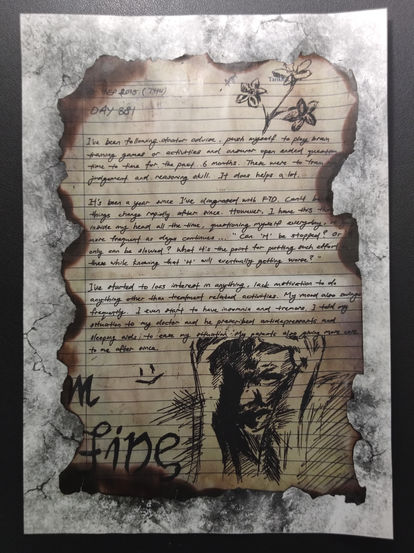 SEP 2015 (THU)
DAY 381
I've been following doctor advise, push myself to play brain
training games or activities and answer open ended question
time to time for the past 6 months. These were to train
judgement and reasoning skill. It does helps a lot.
It's been a year since I've diagnosed with FTD. Can't
things change rapidly after since. However, I have this
inside my head all the time, questioning myself everyday,
more frequent as days continues... "Can 'it' be stopped? Or
only can be slowed? What it's the point for putting such effort
these while knowing that 'it' will eventually getting worse?"
I've started to loss interest in anything, lack motivation to do
anything other than treatment related activities. My mood also swings
frequently. I even start to have insomnia and tremors. I told my
situation to my doctor and he prescribed antidepressants and
sleeping aids to ease my situation. My parents also
to me after once.
I'm
fine